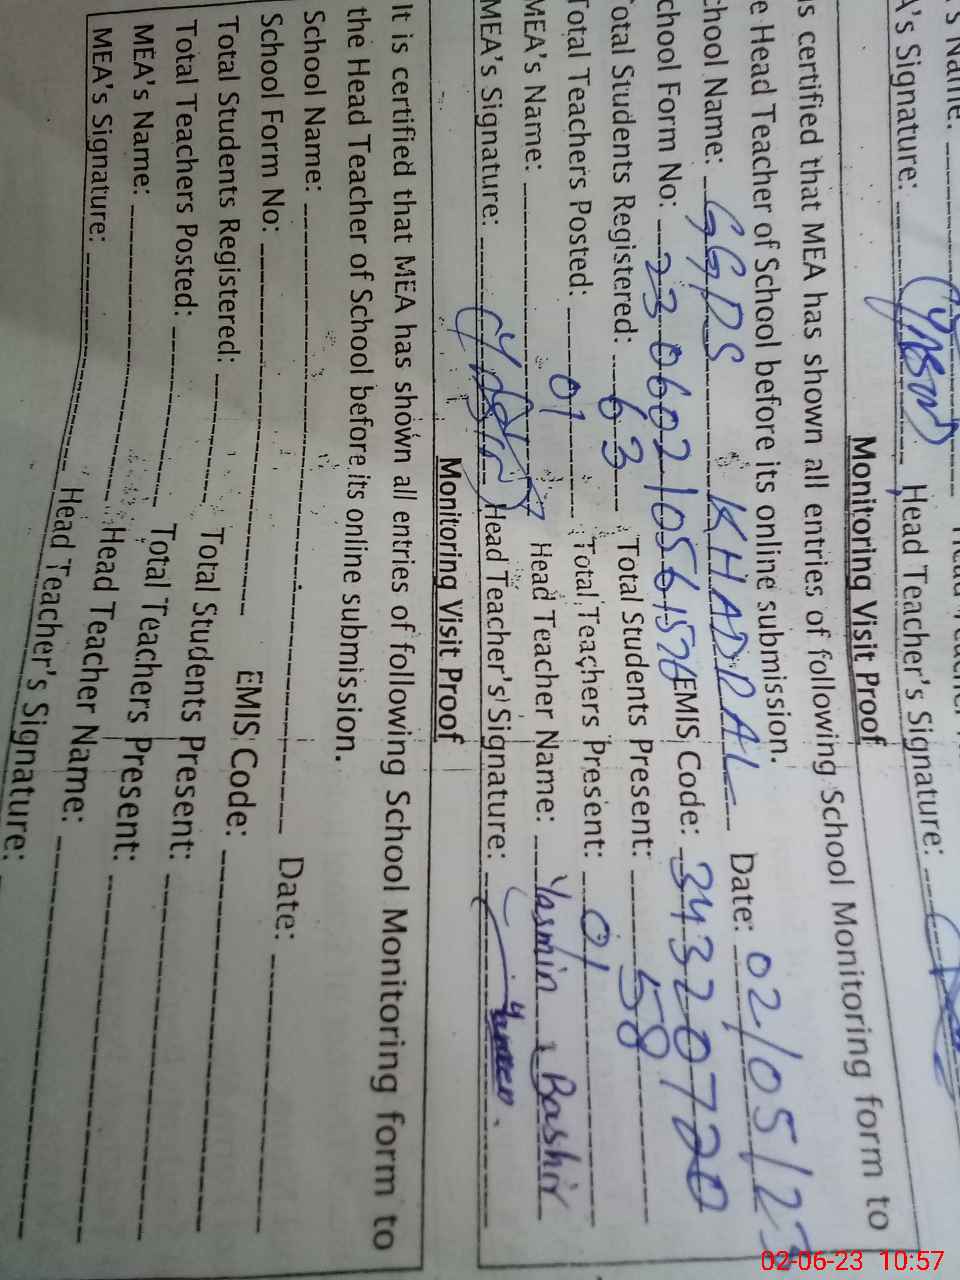 A's Signature: Head Teacher's Signature:
Monitoring Visit Proof
is certified that MEA has shown all entries of following School Monitoring form to
e Head Teacher of School before its online submission.
chool Name: GGPS KHADDAL Date: 02/05/23
chool Form No: 23 0602 1056 1576 EMIS Code: 34320720
otal Students Registered: 63 Total Students Present: 58
Total Teachers Posted: 01 Total Teachers Present: 01
MEA's Name: Head Teacher Name: Yasmin Bashir
MEA's Signature: Head Teacher's Signature:
Monitoring Visit Proof
It is certified that MEA has shown all entries of following School Monitoring form to
the Head Teacher of School before its online submission.
School Name: Date:
School Form No: EMIS Code:
Total Students Registered: Total Students Present:
Total Teachers Posted: Total Teachers Present:
MEA's Name: Head Teacher Name:
MEA's Signature: Head Teacher's Signature:
02-06-23 10:57